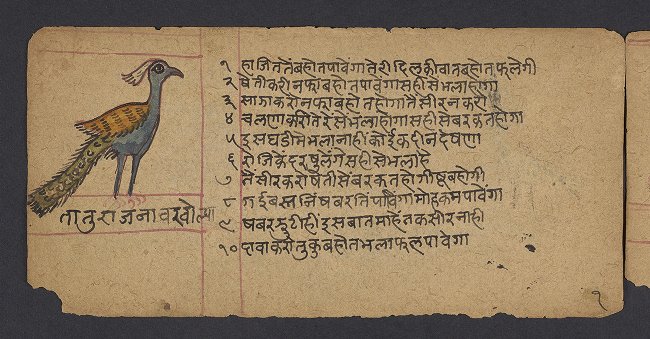 १ हाजितंतें बहोत पावेंगा तेरी दिलकी बात बहोत फलेगी
२ षेंती करी नफा बहोत पावेंगा सही से भला होगा
३ साजा करो नफा बहोत होगा तैसीर न करो
४ चलणा करो तेरे से भला होगा सही से बरकत होगा
५ इस घडी म भला नाही कोई क दीन देषणा
६ रोजि के दर षुलेंगे सही से भला हे
७ तैसीर करो षेती से बरकत होगी षुब होगी
८ गई बस्त जि षबर ति पावेंगा मोहकम पावेंगा
९ षबर झुटी ही इस बात मा हे तकसीर नाही
१० दावा करो तुकु बहोत भला फल पावेगा
तातु राजनावर
१